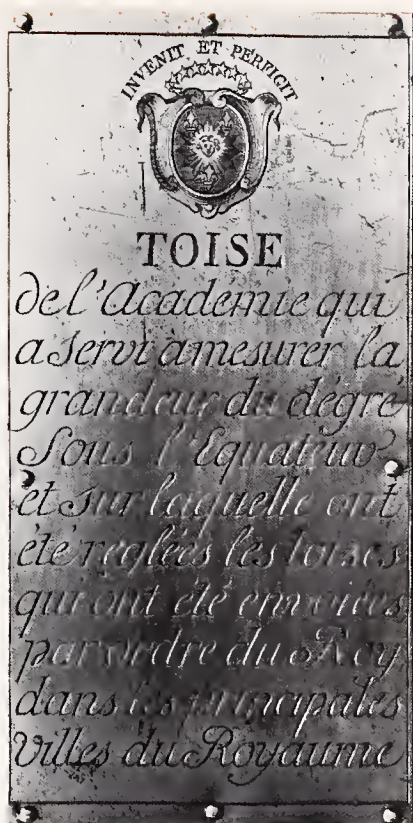 INVENIT ET PERFICIT
TOISE
de l'Académie qui
a servi a mesurer la
grandeur du dégré
Sous l'Equateur
et sur laquelle ont
été reglées les toises
qui ont été envoiées
par ordre du Roy
dans les principales
Villes du Royaume